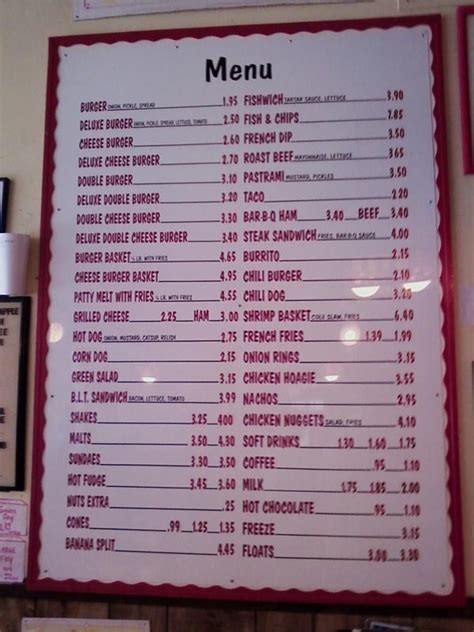 Menu
BURGER ONION, PICKLE, SPREAD 1.95
DELUXE BURGER ONION, PICKLE, SPREAD, LETTUCE, TOMATO 2.50
CHEESE BURGER 2.60
DELUXE CHEESE BURGER 2.70
DOUBLE BURGER 3.10
DELUXE DOUBLE BURGER 3.20
DOUBLE CHEESE BURGER 3.30
DELUXE DOUBLE CHEESE BURGER 3.40
BURGER BASKET ¼ LB. WITH FRIES 4.65
CHEESE BURGER BASKET 4.95
PATTY MELT WITH FRIES ¼ LB. WITH FRIES 4.95
GRILLED CHEESE 2.25 HAM 3.00
HOT DOG ONION, MUSTARD, CATSUP, RELISH 2.75
CORN DOG 2.15
GREEN SALAD 3.20
B.L.T. SANDWICH BACON, LETTUCE, TOMATO 3.99
SHAKES 3.25 4.00
MALTS 3.50 4.30
SUNDAES 3.30 3.50
HOT FUDGE 3.45 3.60
NUTS EXTRA .25
CONES .99 1.25 1.35
BANANA SPLIT 4.45
FISHWICH TARTAR SAUCE, LETTUCE 3.90
FISH & CHIPS 7.85
FRENCH DIP 3.50
ROAST BEEF MAYONNAISE, LETTUCE 3.65
PASTRAMI MUSTARD, PICKLES 3.50
TACO 2.20
BAR-B-Q HAM 3.40 BEEF 3.40
STEAK SANDWICH FRIES, BAR-B-Q SAUCE 4.00
BURRITO 2.15
CHILI BURGER 2.10
CHILI DOG 3.20
SHRIMP BASKET COLE SLAW, FRIES 6.40
FRENCH FRIES 1.39 1.99
ONION RINGS 3.15
CHICKEN HOAGIE 3.55
NACHOS 2.95
CHICKEN NUGGETS SALAD, FRIES 4.10
SOFT DRINKS 1.30 1.60 1.75
COFFEE .95 1.10
MILK 1.75 1.85 2.00
HOT CHOCOLATE .95 1.10
FREEZE 3.15
FLOATS 3.00 3.30